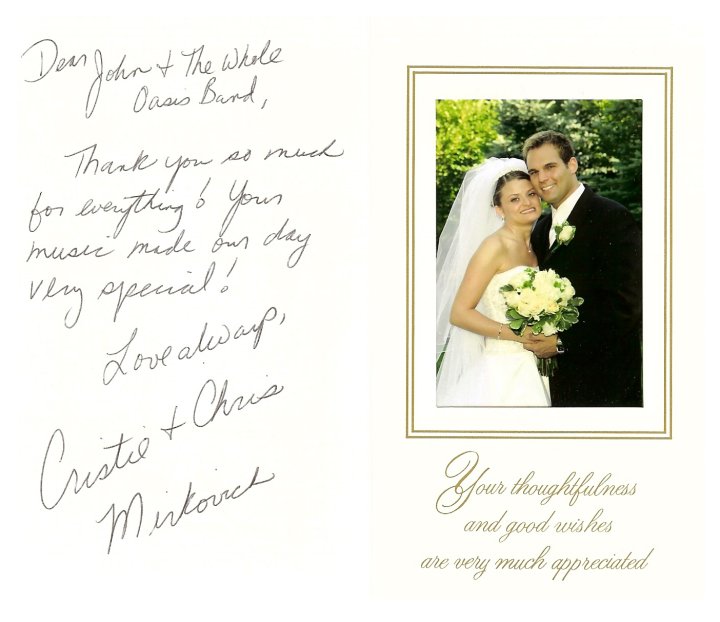 Dear John + The Whole
Oasis Band,
Thank you so much
for everything! Your
music made our day
very special!
Love always,
Cristie + Chris
Mirkovich
Your thoughtfulness
and good wishes
are very much appreciated